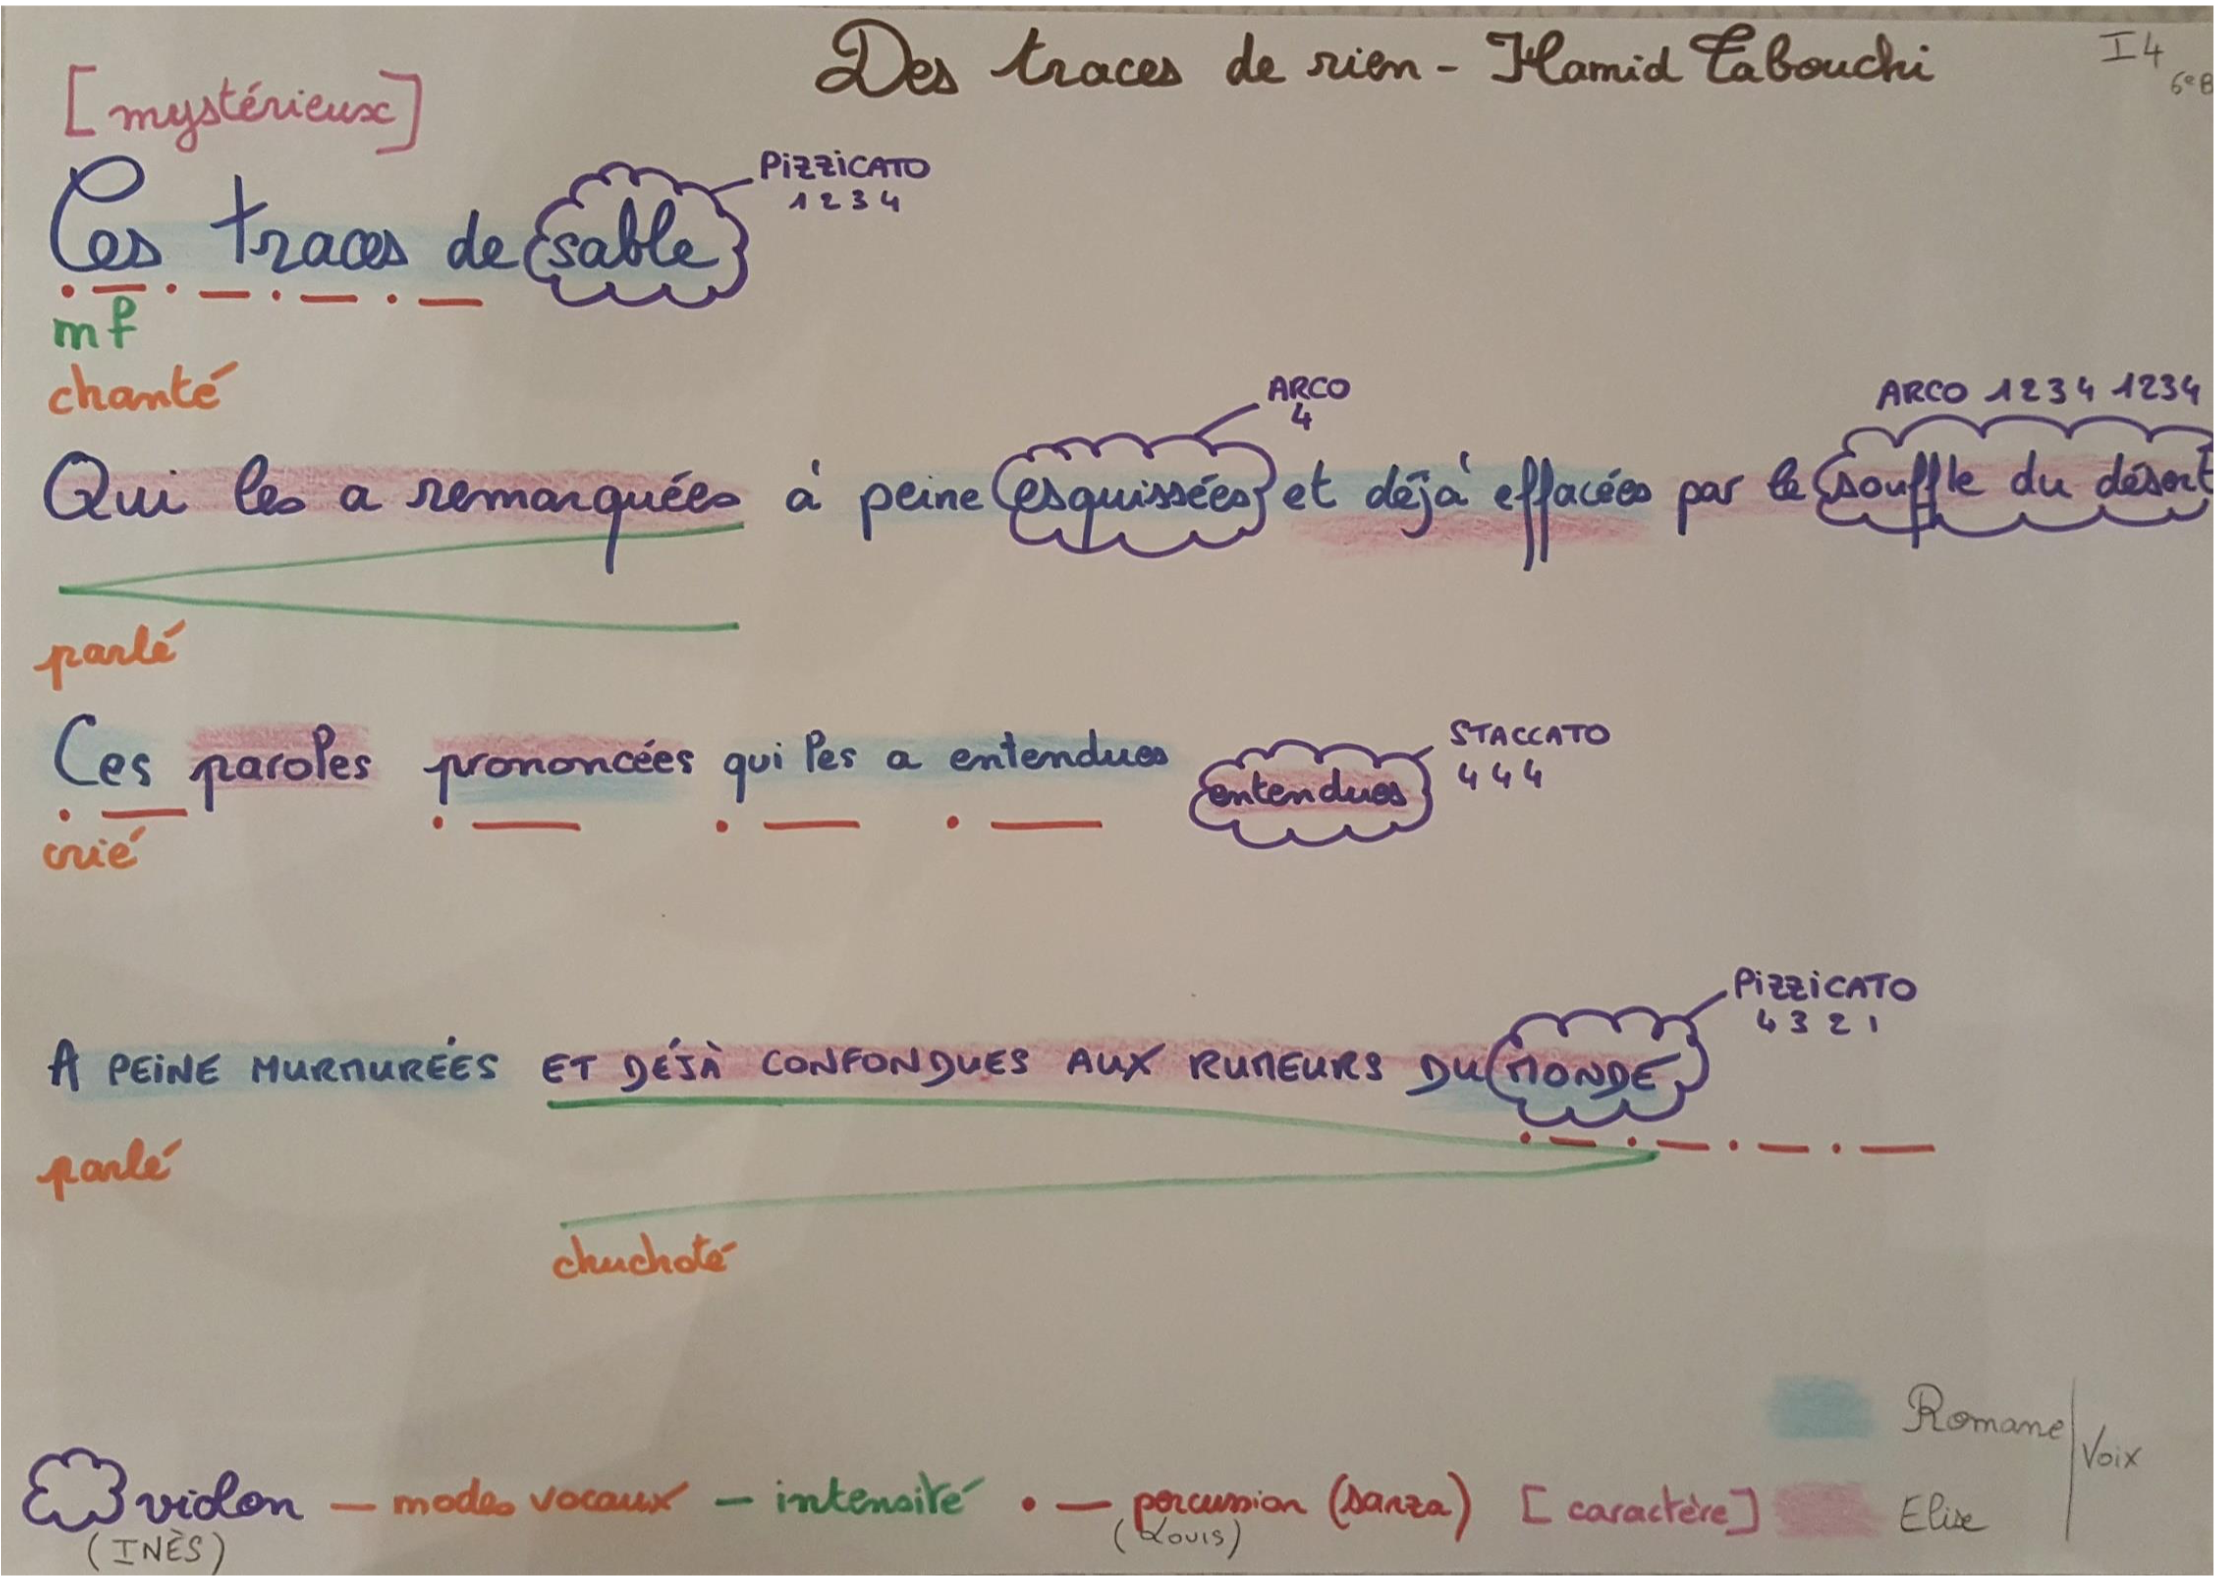 Des traces de rien - Hamid Tabouchi
I4
6eB
[mystérieux]
PiZZiCATO
1 2 3 4
Ces traces de sable
mf
chanté
ARCO
4
ARCO 1 2 3 4 1 2 3 4
Qui les a remarquées à peine esquissées et déjà effacées par le souffle du désert
parlé
STACCATO
4 4 4
Ces paroles prononcées qui les a entendues entendues
crié
PiZZiCATO
4 3 2 1
A PEiNE MURMURÉES ET DÉJÀ CONFONDUES AUX RUMEURS DU MONDE
parlé
chuchoté
Romane
Voix
Elise
violon — modes vocaux — intensité • — percussion (sanza) [caractère]
(INÈS)
(Louis)